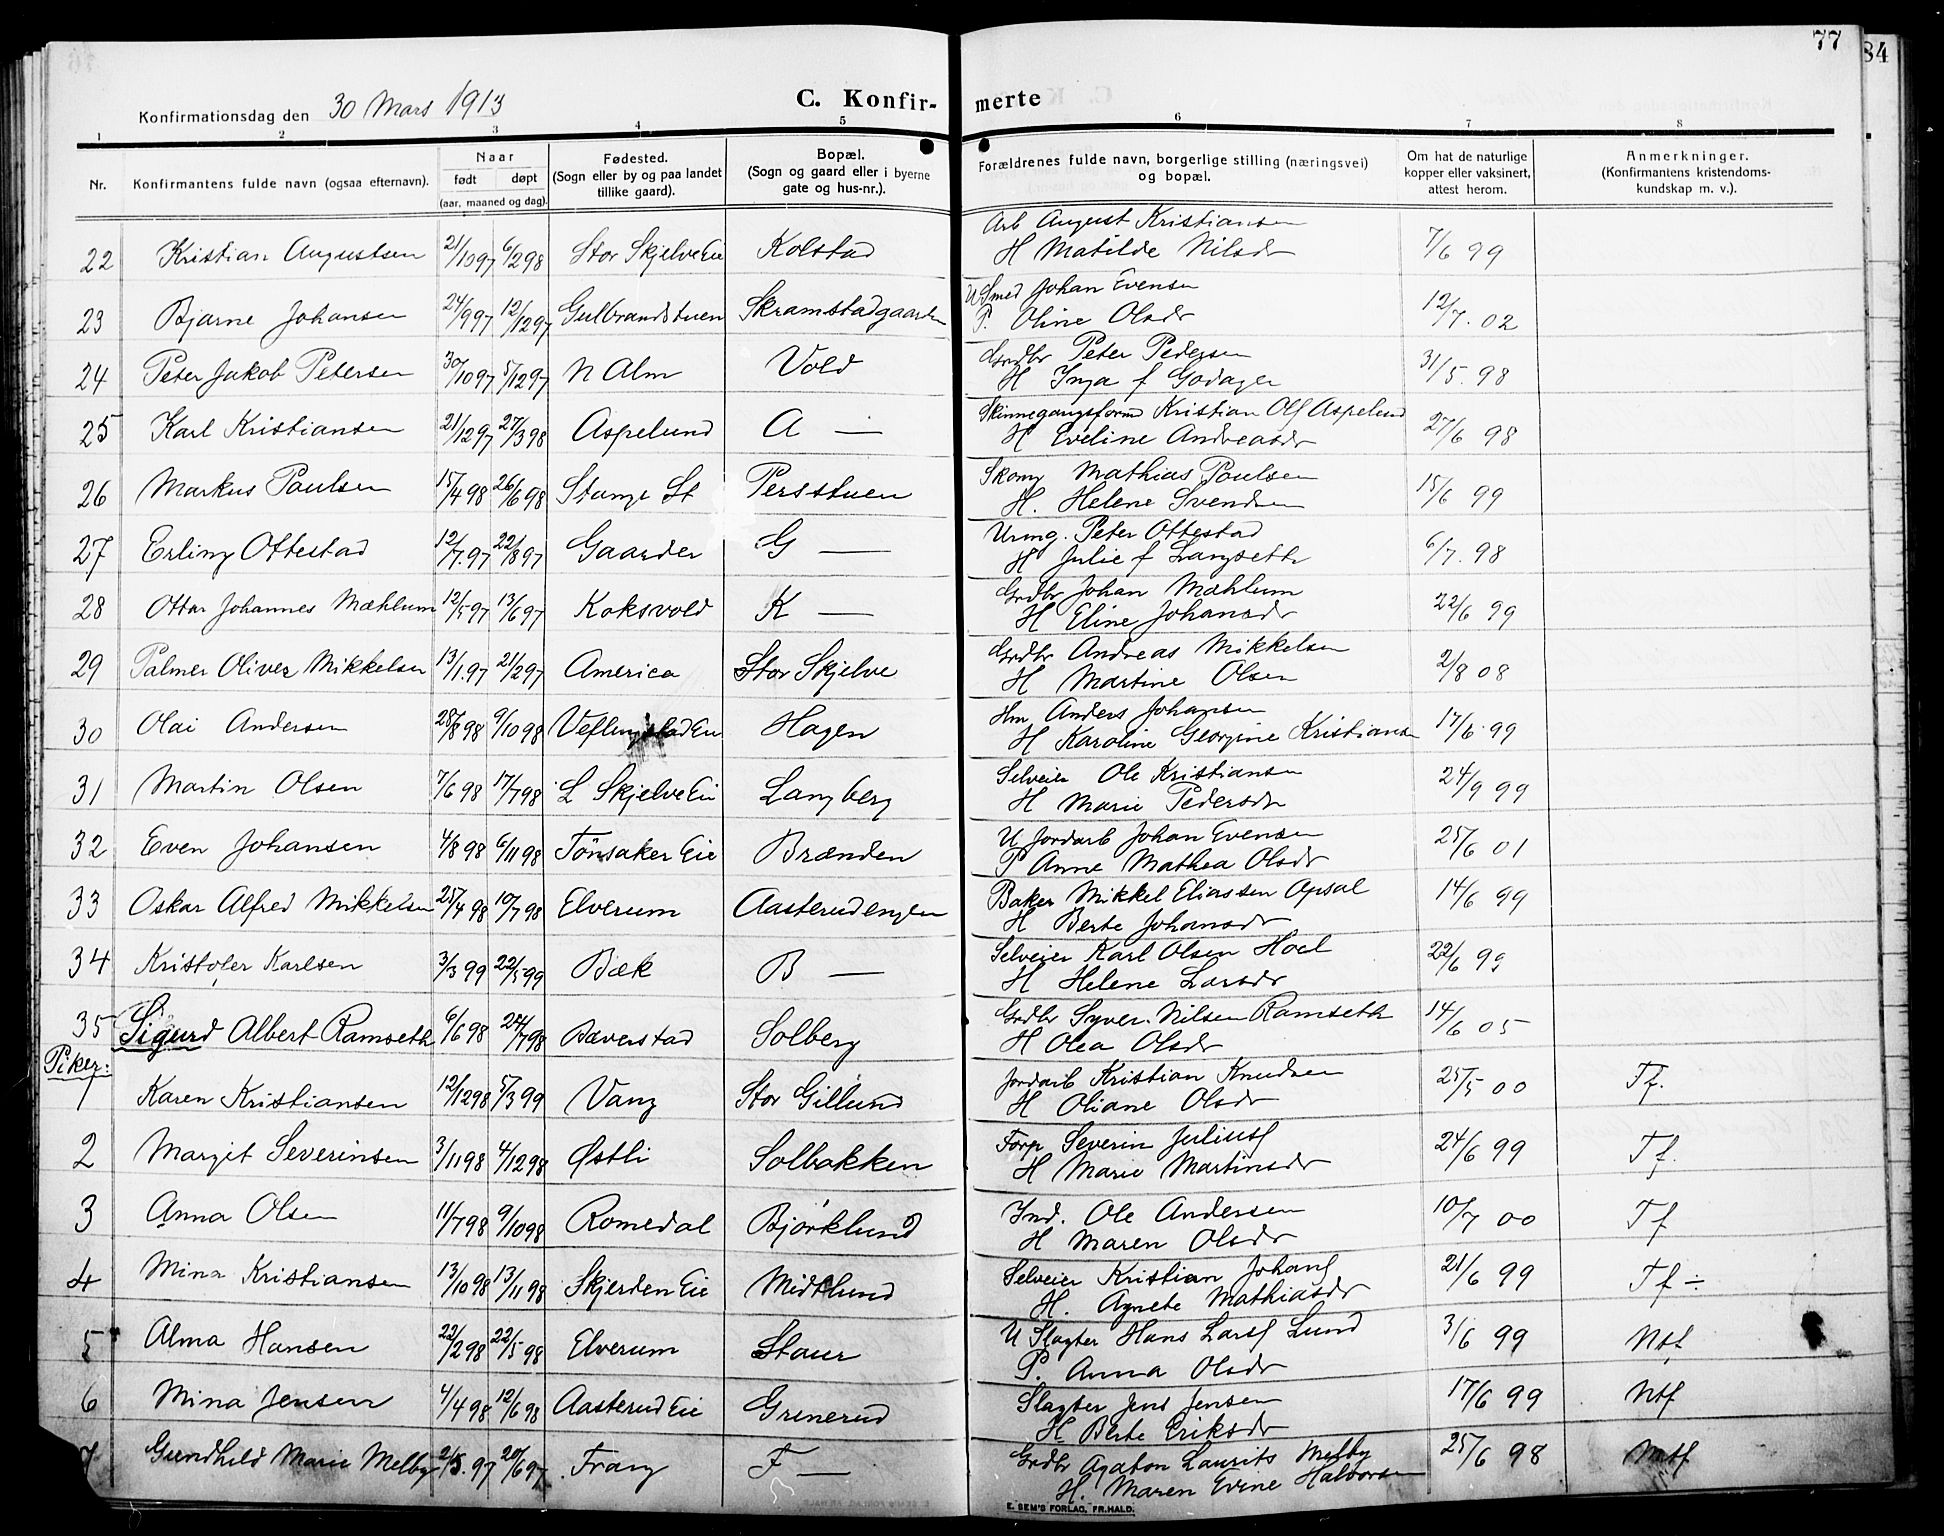 77
84
Konfirmationsdag den 30 Mars 1913
C. Konfir- merte
1 2 3 4 5 6 7 8
Nr.
Konfirmantens fulde navn (ogsaa efternavn).
Naar
født døpt
(aar, maaned og dag).
Fødested.
(Sogn eller by og paa landet
tillike gaard).
Bopæl.
(Sogn og gaard eller i byerne
gate og hus-nr.).
Forældrenes fulde navn, borgerlige stilling (næringsvei)
og bopæl.
Om hat de naturlige
kopper eller vaksinert,
attest herom.
Anmerkninger.
(Konfirmantens kristendoms-
kundskap m. v.).
22 Kristian Augustsen 21/10 97 6/2 98 Stor Skjelve Eie Kolstad Arb August Kristiansen 7/6 99
H Matilde Nilsdr
23 Bjarne Johansen 24/9 97 12/12 97 Gulbrandstuen Skramstadgaarden U Smed Johan Evensen 12/7. 02
P. Oline Olsdr
24 Peter Jakob Petersen 30/10 97 5/12 97 N Alm Vold Grdbr Peter Pedersen 31/5. 98
H Inga f Godager
25 Karl Kristiansen 21/12 97 27/3 98 Aspelund A — Skinnegangsformd Kristian Ols Aspelund 27/6 98
H Eveline Andreasdr
26 Markus Paulsen 15/4 98 26/6 98 Stange St Persstuen Skomg Mathias Paulsen 15/6 99
H. Helene Svendsen
27 Erling Ottestad 12/7. 97 22/8 97 Gaarder G — Urmg. Peter Ottestad 6/7. 98
H Julie f Langseth
28 Ottar Johannes Mæhlum 12/5 97 13/6 97 Koksvold K — Grdbr Johan Mæhlum 22/6 99
H Eline Johansdr
29 Palmer Oliver Mikkelsen 13/1. 97 21/2 97 America Stor Skjelve Grdbr Andreas Mikkelsen 2/8 08
H Martine Olsen
30 Olai Andersen 28/8 98 9/10 98 Veflingstad Eie Hagen Hm Anders Johansen 17/6. 99
H Karoline Georgine Kristiansen
31 Martin Olsen 7/6 98 17/7 98 L Skjelve Eie Langberg Selveier Ole Kristiansen 24/9 99
H Marie Pedersdr
32 Even Johansen 4/8 98 6/11 98 Tønsaker Eie Brænden U Jordarb Johan Evensen 25/6 01
P Anne Mathea Olsdr
33 Oskar Alfred Mikkelsen 25/4 98 10/7 98 Elverum Aasterudengen Baker Mikkel Eliassen Opsal 14/6 99
H Berte Johansdr
34 Kristofer Karlsen 3/3 99 22/5 99 Bæk B — Selveier Karl Olsen Hoel 22/6 99
H Helene Larsdr
35 Sigurd Albert Ramseth 6/6 98 24/7 98 Bæverstad Solberg Grdbr Syver Nilsen Ramseth 14/6 05
H Olea Olsdr
Piker:
1 Karen Kristiansen 12/12 98 5/3 99 Vang Stor Gillund Jordarb Kristian Knudsen 25/5 00 Tf.
H Oliane Olsdr
2 Margit Severinsen 3/11 98 4/12 98 Østli Solbakken Forp Severin Juliuss 24/6 99 Tf.
H Marie Martinsdr
3 Anna Olsen 11/7 98 9/10 98 Romedal Bjørklund Ind. Ole Andersen 10/7 00 Tf
H Maren Olsdr
4 Mina Kristiansen 13/10 98 13/11 98 Skjerden Eie Midtlund Selveier Kristian Johans 21/6 99 Tf ÷
H. Agnete Mathiasdr
5 Alma Hansen 22/2 98 22/5 98 Elverum Staur U Slagter Hans Larss Lund 3/6 99 Mtf
P. Anna Olsdr
6 Mina Jensen 4/4 98 12/6 98 Aasterud Eie Grinerud Slagter Jens Jensen 17/6 99 Mtf
H Berte Eriksdr
7 Gundhild Marie Melby 2/5. 97 20/6 97 Frang F — Grdbr Agaton Laurits Melby 25/6 98 Mtf
H. Maren Evine Halvorsen
E. SEM'S FORLAG, FR.HALD.